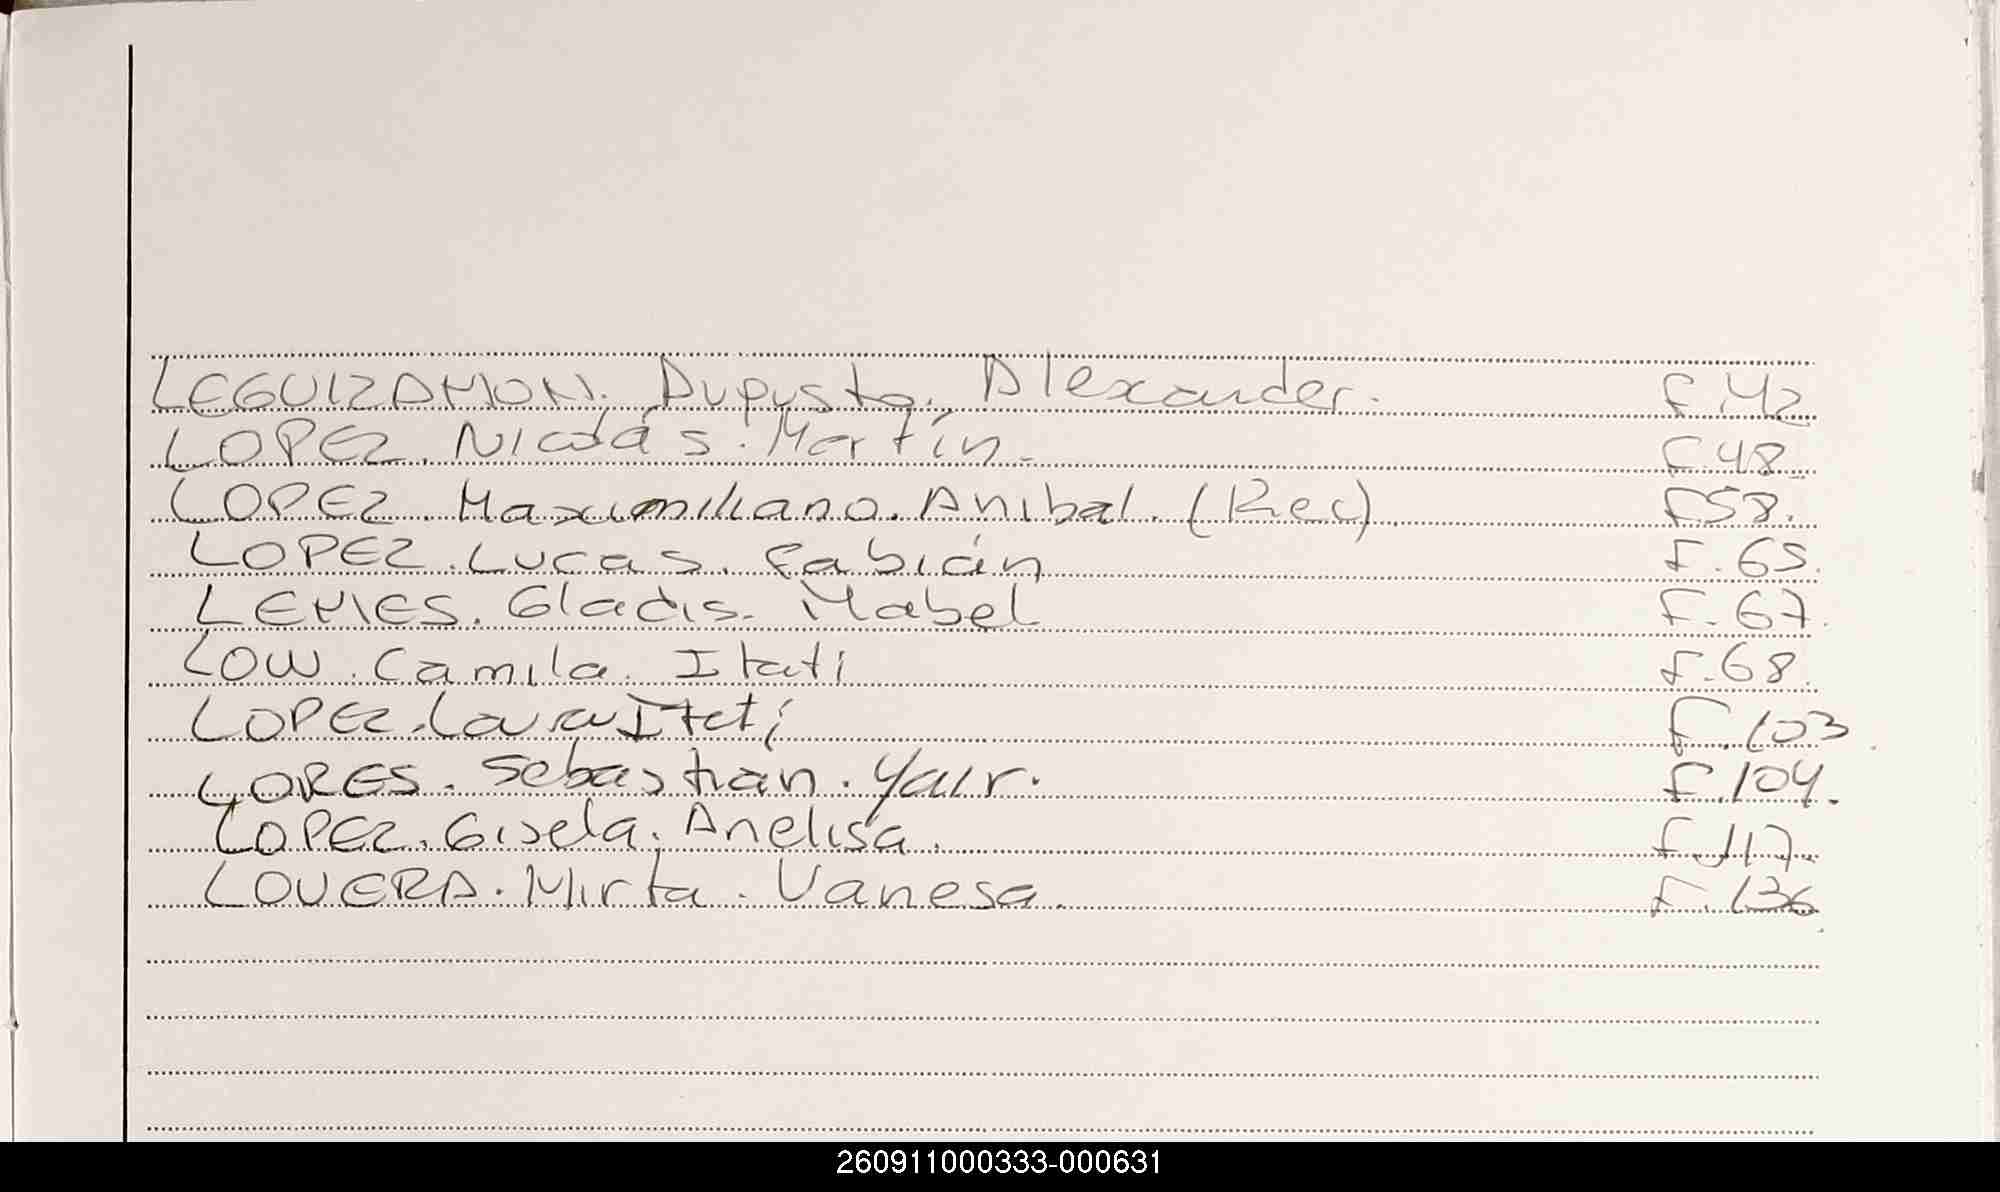 LEGUIZAMON. Augusto. Alexander. F.42
LOPEZ. Nicolás. Martín. F.48
LOPEZ. Maximiliano. Anibal. (Rec) F58.
LOPEZ. Lucas. Fabián F.65.
LEMES. Gladis. Mabel F.67.
LOW. Camila. Itati F.68.
LOPEZ. Lara Itatí F.103
LORES. Sebastian. Yair. F.104.
LOPEZ. Gisela. Anelisa. F.117.
LOVERA. Mirta. Vanesa. F.136
260911000333-000631